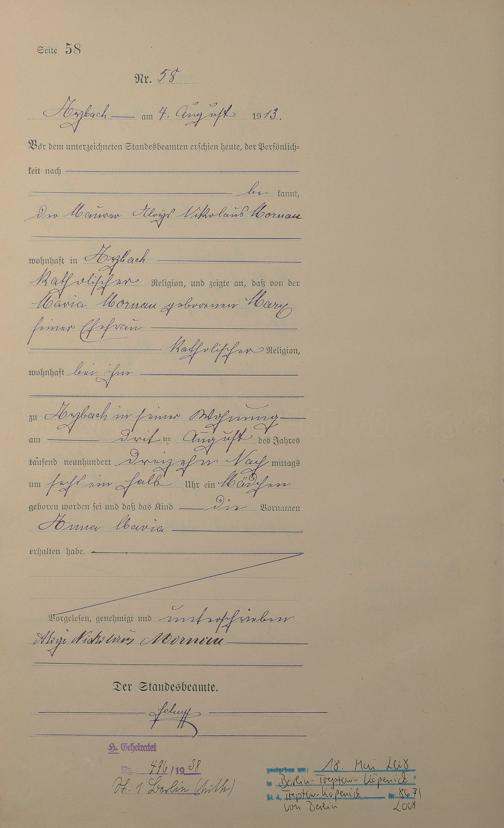 Seite 58
Nr. 58
Arzbach am 4. August 1913.
Vor dem unterzeichneten Standesbeamten erschien heute, der Persönlich-
keit nach
be kannt,
der Maurer Aloys Nikolaus Mornau
wohnhaft in Arzbach
katholischer Religion, und zeigte an, daß von der
Maria Mornau geborenen Marx
seiner Ehefrau
katholischer Religion,
wohnhaft bei ihm
zu Arzbach in seiner Wohnung
am drei August des Jahres
tausend neunhundert dreizehn Nach mittags
um sechs ein halb Uhr ein Mädchen
geboren worden sei und daß das Kind die Vornamen
Anna Maria
erhalten habe.
Vorgelesen, genehmigt und unterschrieben
Aloys Nikolaus Mornau
Der Standesbeamte.
H. Geheiratet
Nr. 496/1938
St. 1 Berlin
gestorben am: 18 Mai 2008
in Berlin-Treptow-Köpenick
St. A. Treptow-Köpenick Nr.
von Berlin 2008